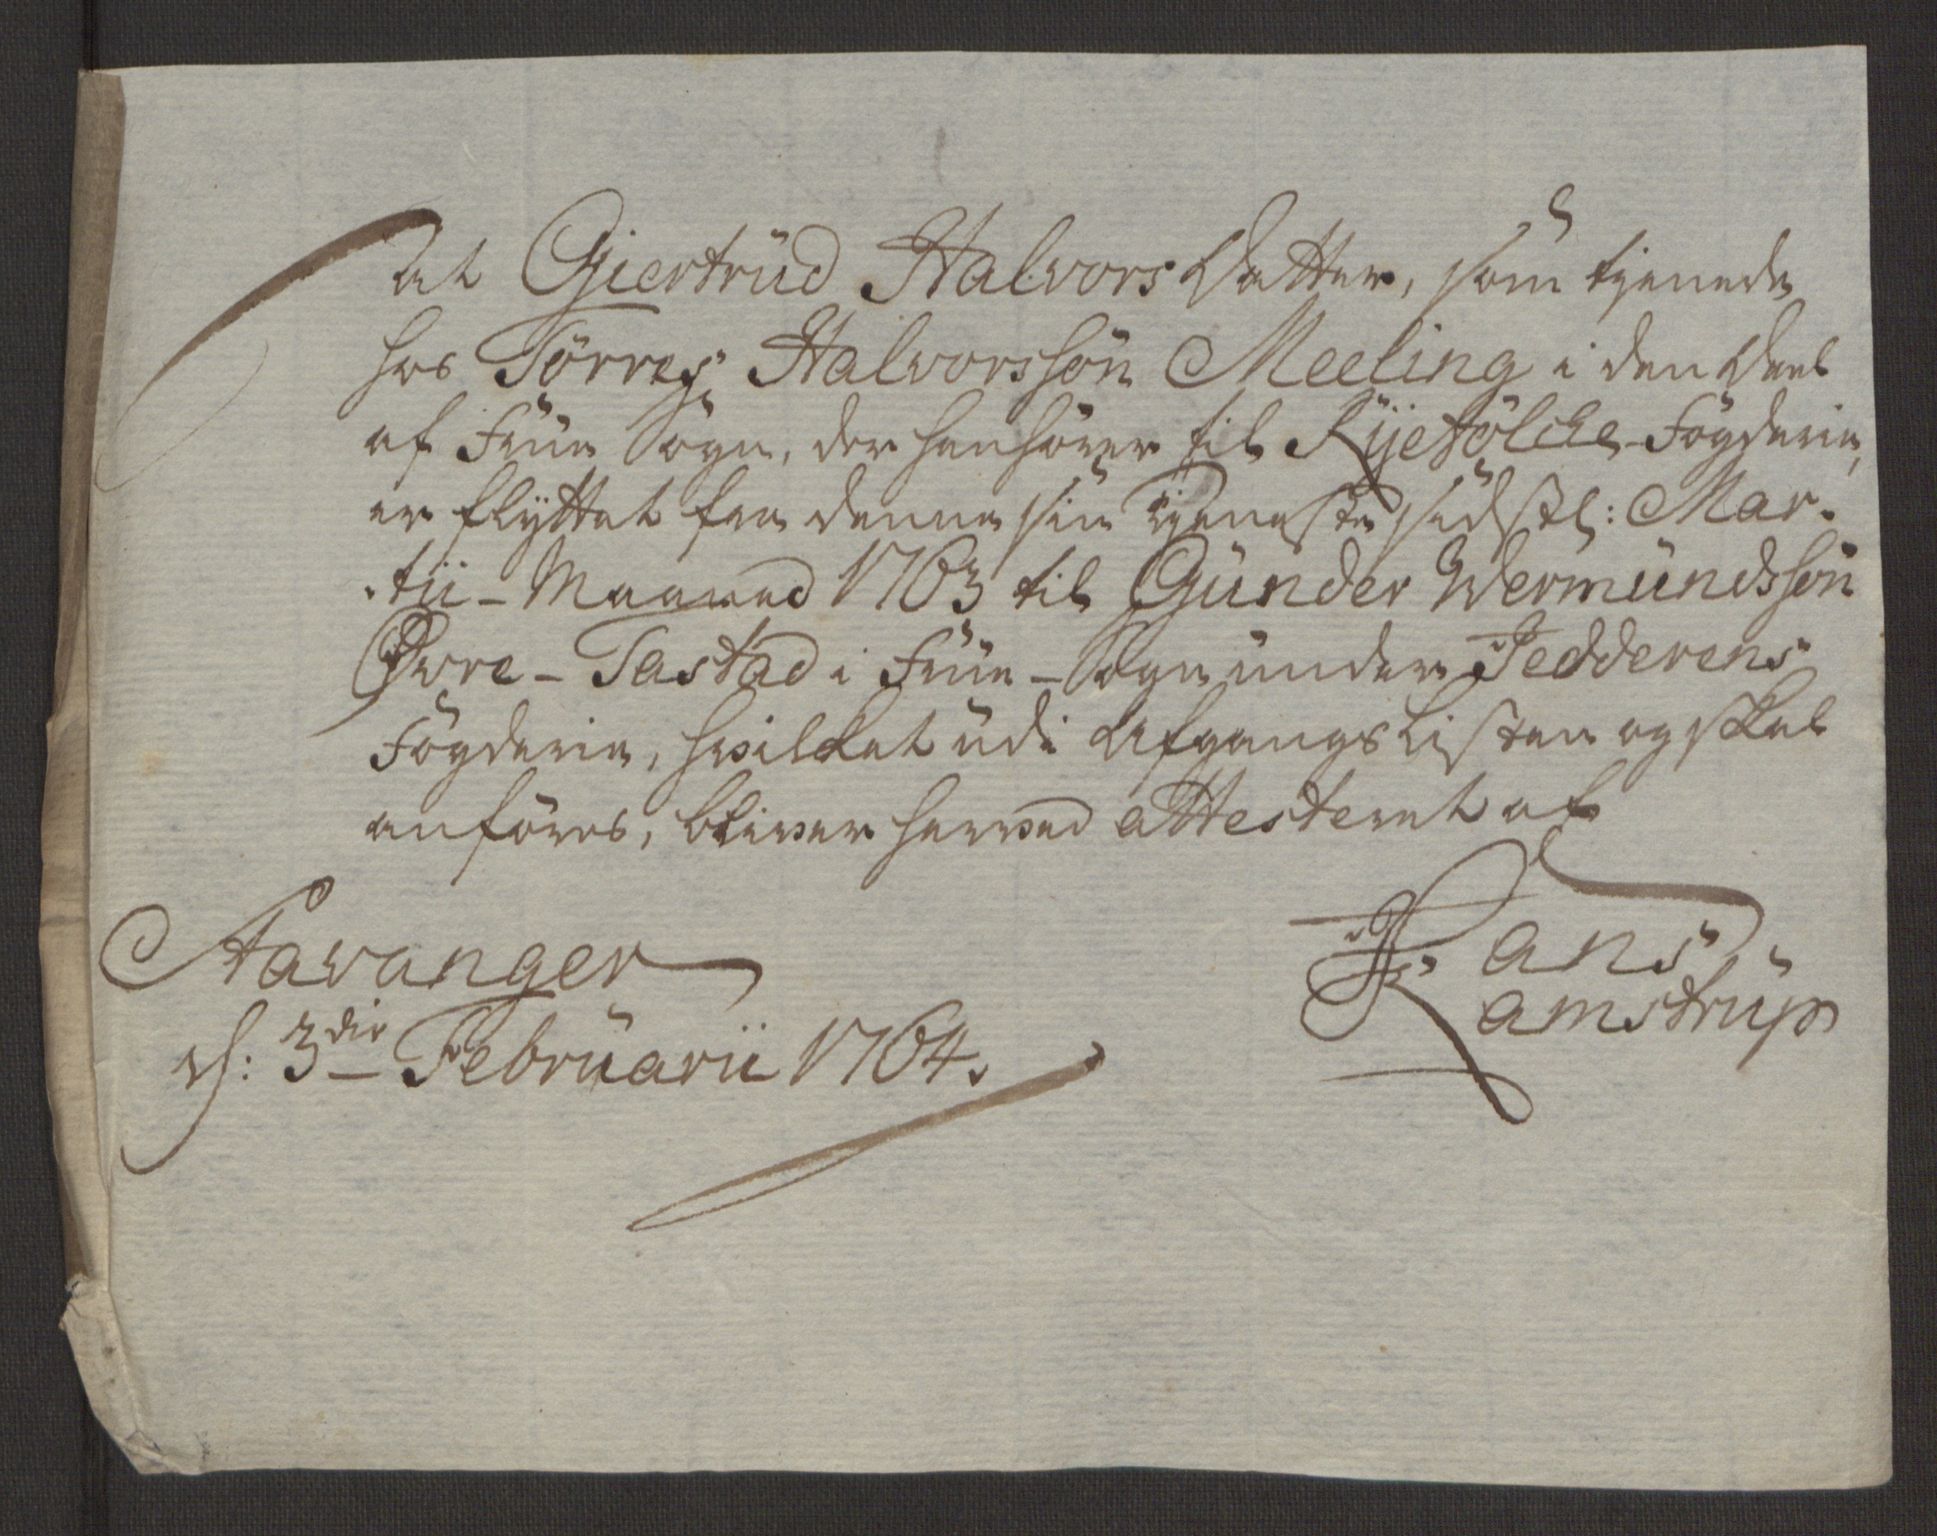 At Giertrüd Halvors Datter, som tjenede
hos Törres Halvorssön Meeling i den Deel
af Frue Sogn, der henhörer til Ryefölcke Fögderie,
er flyttet fra denne sin Tjeneste sidstl: Mar-
tii - Maaned 1763 til Günder Wermündssön
Øvre - Tastad i Frue - Sogn ünder Jedderens
Fögderie, hvilket üdi Afgangs Listen og skal
anföres, bliver herved attesteret af
Stavanger
d: 3die Febrüarii 1764.
Hans
Ramstrüp